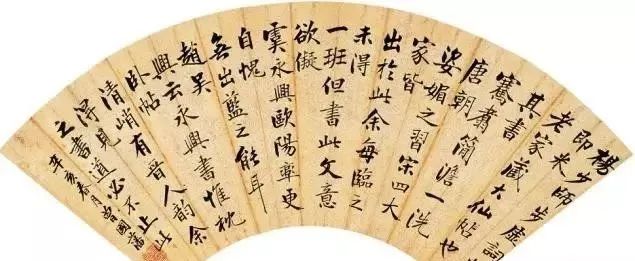 楊少師步虛詞
即米
老家藏大仙帖也
其書
騫翥簡澹一洗
唐朝
姿媚之習宋四大
家皆
出於此余每臨之
未得
一班但書此文意
欲儗
虞永興歐陽率更
自愧
無出藍之能耳
趙吳
興云永興書惟枕
臥帖
清峭有晉人韵余
得見道必不止此
之書
辛亥春月曾國藩